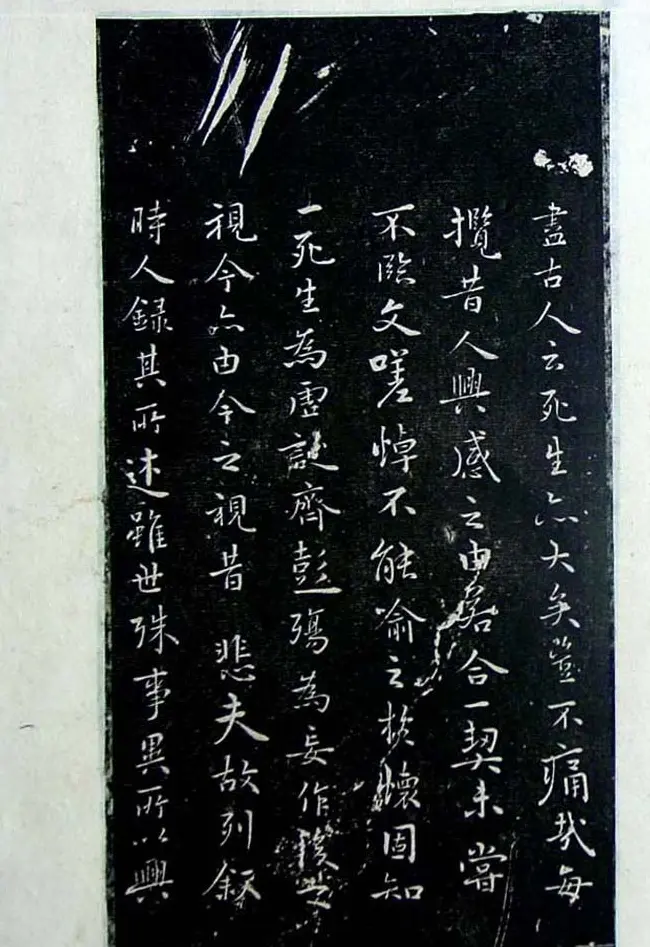 盡古人云死生亦大矣豈不痛哉每
攬昔人興感之由若合一契未嘗
不臨文嗟悼不能喻之於懷固知
一死生為虛誕齊彭殤為妄作後之
視今亦由今之視昔悲夫故列叙
時人錄其所述雖世殊事異所以興